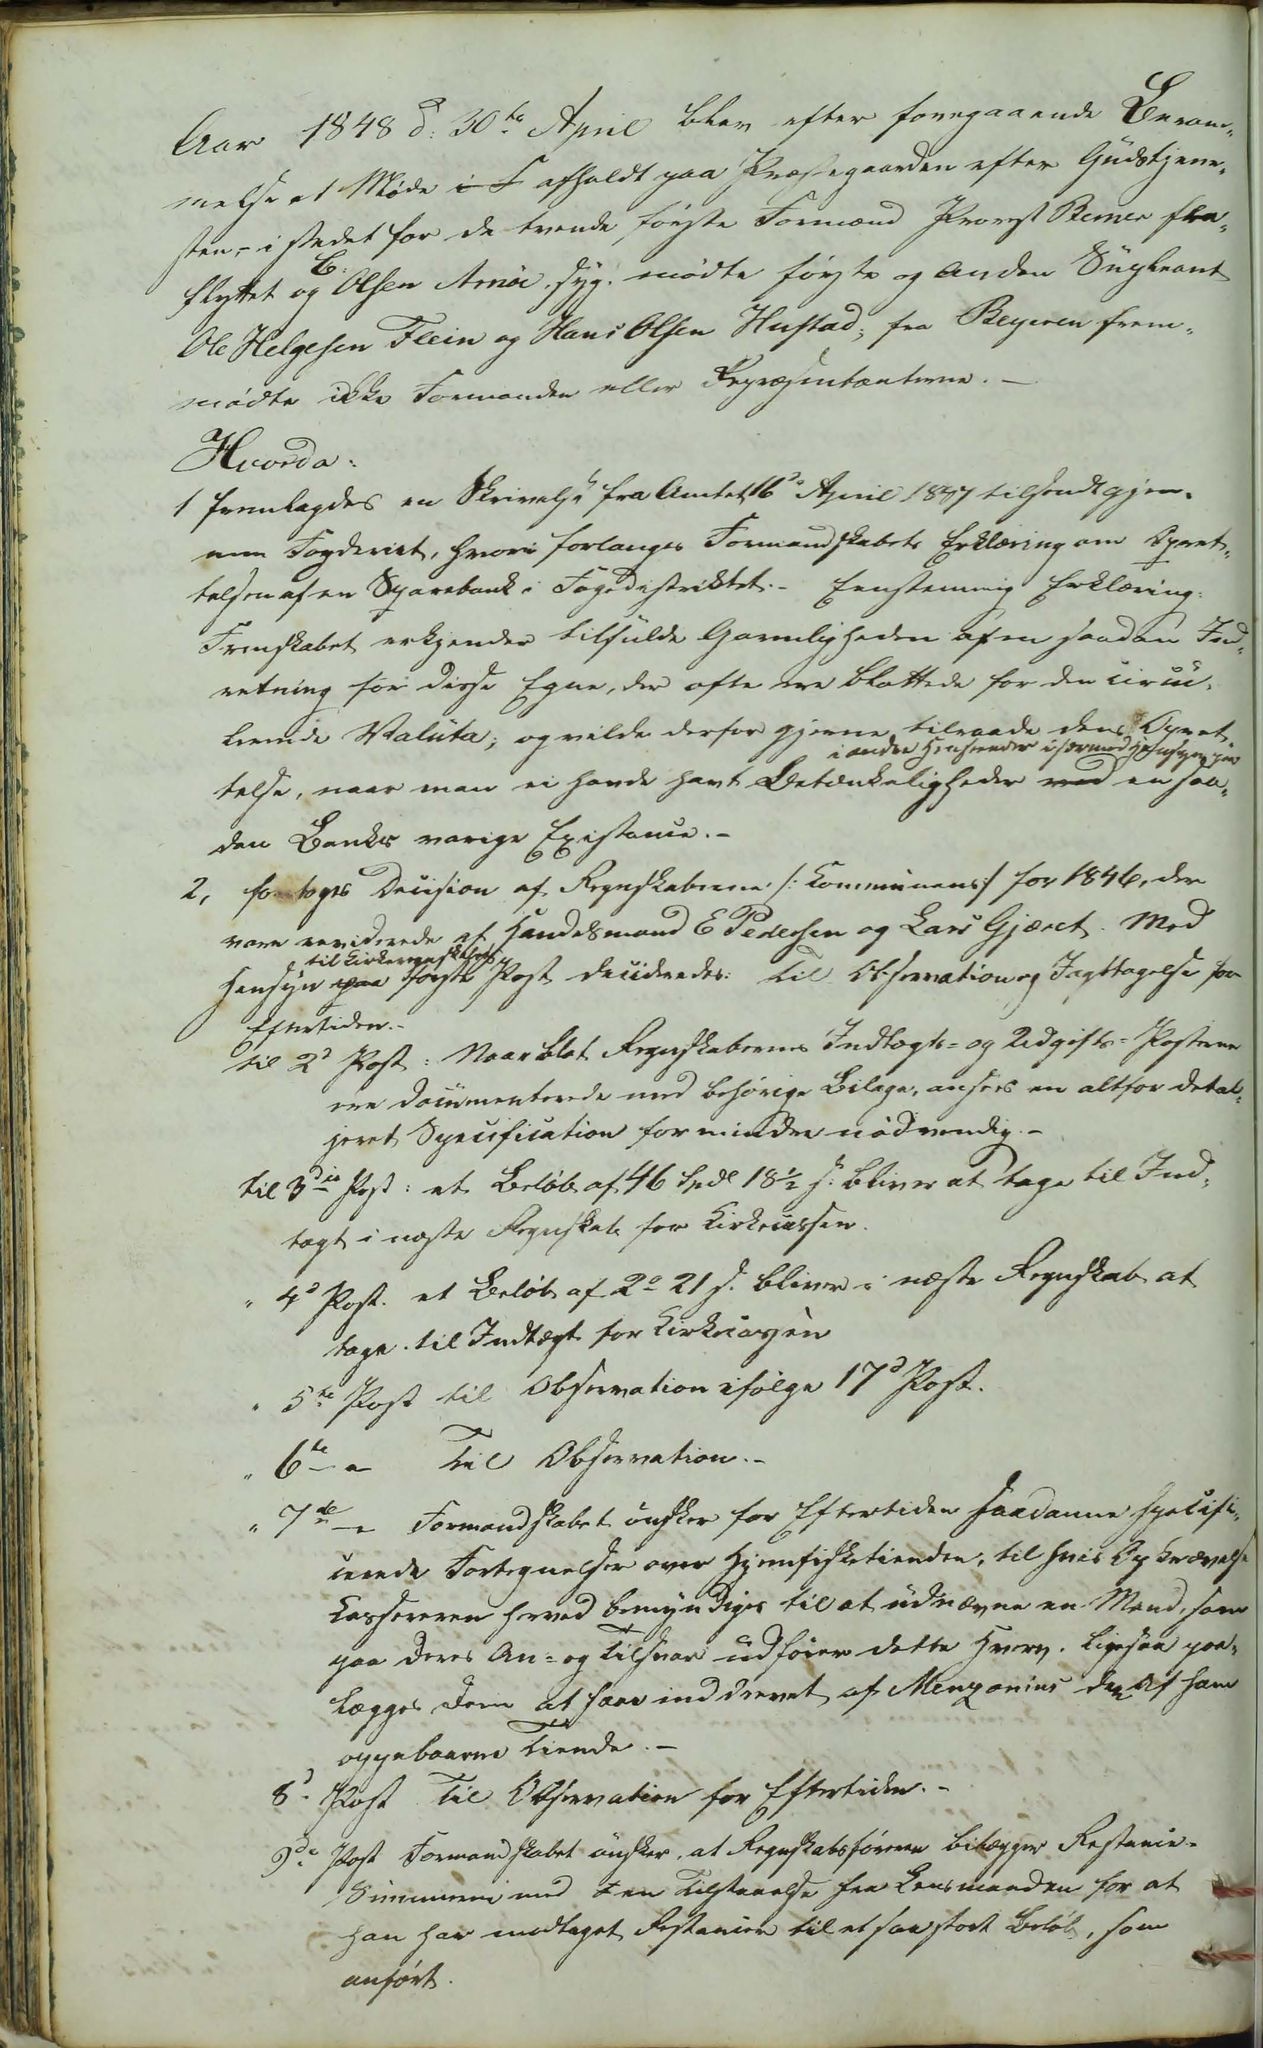 Aar 1848 d: 30te April blev efter foregaaende Beram-
melse et Møde i F afholdt paa Præstegaarden efter Gudstjene-
sten, - i stedet for de tvende første Formænd Provst Bemer fra-
flyttet og C. Olsen Arnøe, syg. mødte første og anden Supleant
Ole Helgesen Flein og Hans Olsen Hustad; fra Beyeren frem-
mødte ikke Formanden eller Repræsentanterne. -
Hvorda:
1 fremlagdes en Skrivelse fra Amtet 16de April 1847 tilsendt gjen-
nem Fogderiet, hvori forlanges Formandskabets Erklæring om Opret-
telsen af en Sparebank i Fogedistriktet. - Eenstemmig Erklæring:
Frmskabet erkjender tilfulde Gavnligheden af en saadan Ind-
retning for disse Egne, der ofte ere blottede for den circu-
lerende Valuta; og vilde derfor gjerne tilraade dens Opret-
i andre Henseender især med Hensyn paa
telse, naar man ei havde havt Betænkeligheder ved en saa-
dan Banks varige Existance. -
2, foretoges Decision af Regnskaberne /: Communens :/ for 1846, der
vare reviderede af Handelsmand E Pedersen og Lars Gjæret. Med
til Kirkeregnskabets
Hensyn paa første Post decideredes: Til Observation og Iagttagelse for
Eftertiden. -
til 2d Post: Naar blot Regnskabernes Indtægts- og Udgifts-Posterne
ere documenterede med behørige Bilage, ansees en altfor detal-
jeret Specification for mindre nødvendig. -
til 3die Post: et Beløb af 46 Spdl 18½ s. bliver at tage til Ind-
tægt i næste Regnskab for Kirkecassen.
" 4d Post. et Beløb af 2o 21 s. bliver i næste Regnskab at
tage til Indtægt for Kirkecassen
" 5te Post til Observation ifølge 17d Post.
" 6te - " - Til Observation. -
" 7de - " Formandskabet ønsker for Eftertiden saadanne specifi-
cerede Fortegnelser over Hjemfisketienden, til hvis Opkrævelse
Kassereren herved bemyndiges til at udnævne en Mand, som
paa deres An- og Tilsvar udfører dette Hverv. Ligesaa paa-
lægges dem at faae inddrevet af Menzonius den af ham
oppebaarne Tiende. -
8d Post Til Observation for Eftertiden. -
9de Post Formandskabet ønsker, at Regnskabsføreren bilægger Restance-
Summerne med en Tilstaaelse fra Lensmanden for at
han har modtaget Restancer til et saa stort Beløb, som
anført.